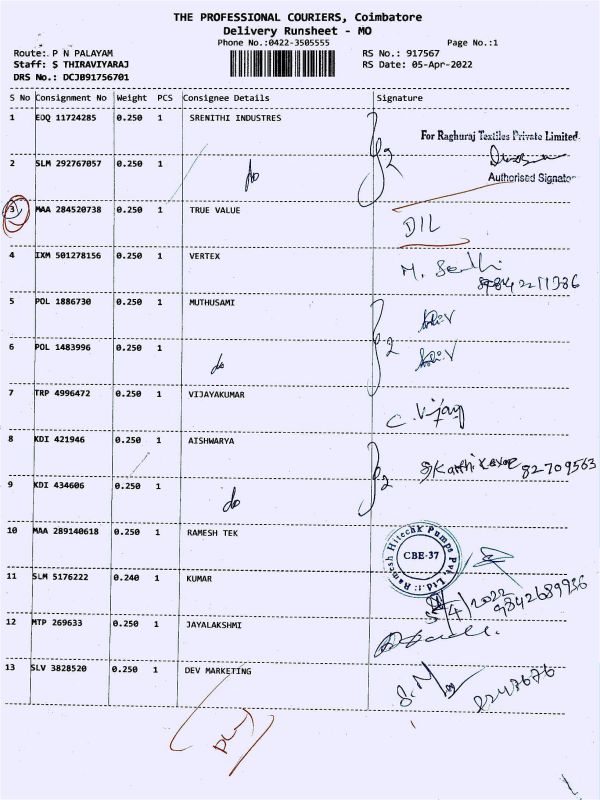 THE PROFESSIONAL COURIERS, Coimbatore
Delivery Runsheet - MO
Phone No.:0422-3505555
Page No.:1
Route: P N PALAYAM
RS No.: 917567
Staff: S THIRAVIYARAJ
RS Date: 05-Apr-2022
DRS No.: DCJB91756701
S No Consignment No Weight PCS Consignee Details Signature
1 EOQ 11724285 0.250 1 SRENITHI INDUSTRES
For Raghuraj Textiles Private Limited
2 SLM 292767057 0.250 1 do 2
Authorised Signator
3 MAA 284520738 0.250 1 TRUE VALUE
DIL
4 IXM 501278156 0.250 1 VERTEX
M.
5 POL 1886730 0.250 1 MUTHUSAMI
6 POL 1483996 0.250 1 do 2
7 TRP 4996472 0.250 1 VIJAYAKUMAR
C. Vijay
8 KDI 421946 0.250 1 AISHWARYA
82709563
9 KDI 434606 0.250 1 do 2
10 MAA 289140618 0.250 1 RAMESH TEK
Ramesh Hitechk Pumps Pvt. Ltd.
CBE-37
11 SLM 5176222 0.240 1 KUMAR
5/4/2022
9842689936
12 MTP 269633 0.250 1 JAYALAKSHMI
13 SLV 3828520 0.250 1 DEV MARKETING
S.M